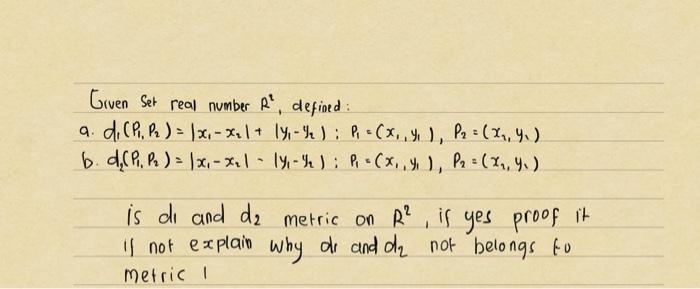 Given Set real number R², defined:
a. d₁(P₁, P₂) = |x₁ - x₂| + |y₁ - y₂| ; P₁ = (x₁, y₁), P₂ = (x₂, y₂)
b. d₂(P₁, P₂) = |x₁ - x₂| - |y₁ - y₂| ; P₁ = (x₁, y₁), P₂ = (x₂, y₂)
is d₁ and d₂ metric on R², if yes proof it
if not explain why d₁ and d₂ not belongs to
metric !